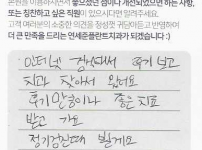 본원을 이용하시면서 좋으셨던 점이나 개선되었으면 하는 사항,
또는 칭찬하고 싶은 직원이 있으시다면 알려주세요.
고객 여러분의 소중한 의견을 정성껏 귀담아듣고 반영하여
더 큰 만족을 드리는 연세준플란트치과가 되겠습니다 :)
인터넷 검색해서 후기 보고
치과 찾아서 왔어요
후기 만큼이나 좋은 진료
받고 가요
정기검진때 뵐게요